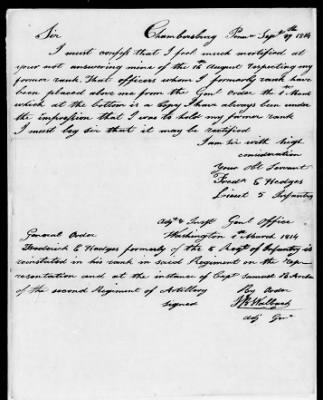 Sir Chambersburg Penna Sept 27th 1814
I must confess that I feel much mortified at
your not answering mine of the 16th August respecting my
former rank. That officers whom I formerly rank have
been placed above me from the Genl order the 5th March
which at the bottom is a Copy I have always been under
the impression that I was to hold my former rank
I must beg sir that it may be rectified
I am sir with high
consideration
Your Obt Servant
Fredk E Hedges
Lieut 5 Infantry
Adjt & Inspt Genl Office
General Order Washington 5th March 1814
Frederick E Hedges formerly of the 5 Regt of Infantry is
reinstated in his rank in said Regiment on the rep-
resentation and at the instance of Capt Samuel B
of the second Regiment of Artillery
By Order
signed JB Walbach
adj Gnl